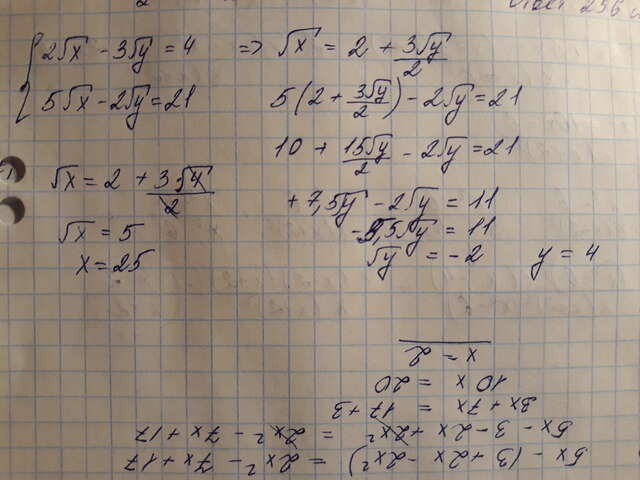 2√x - 3√y = 4 => √x = 2 + 3√y/2
5√x - 2√y = 21
5(2 + 3√y/2) - 2√y = 21
10 + 15√y/2 - 2√y = 21
+ 7,5y - 2√y = 11
5,5√y = 11
√y = -2 y = 4
√x = 2 + 3√4/2
√x = 5
x = 25
5x - (3 + 2x - 2x²) = 2x² - 7x + 17
5x - 3 - 2x + 2x² = 2x² - 7x + 17
3x + 7x = 17 + 3
10x = 20
x = 2